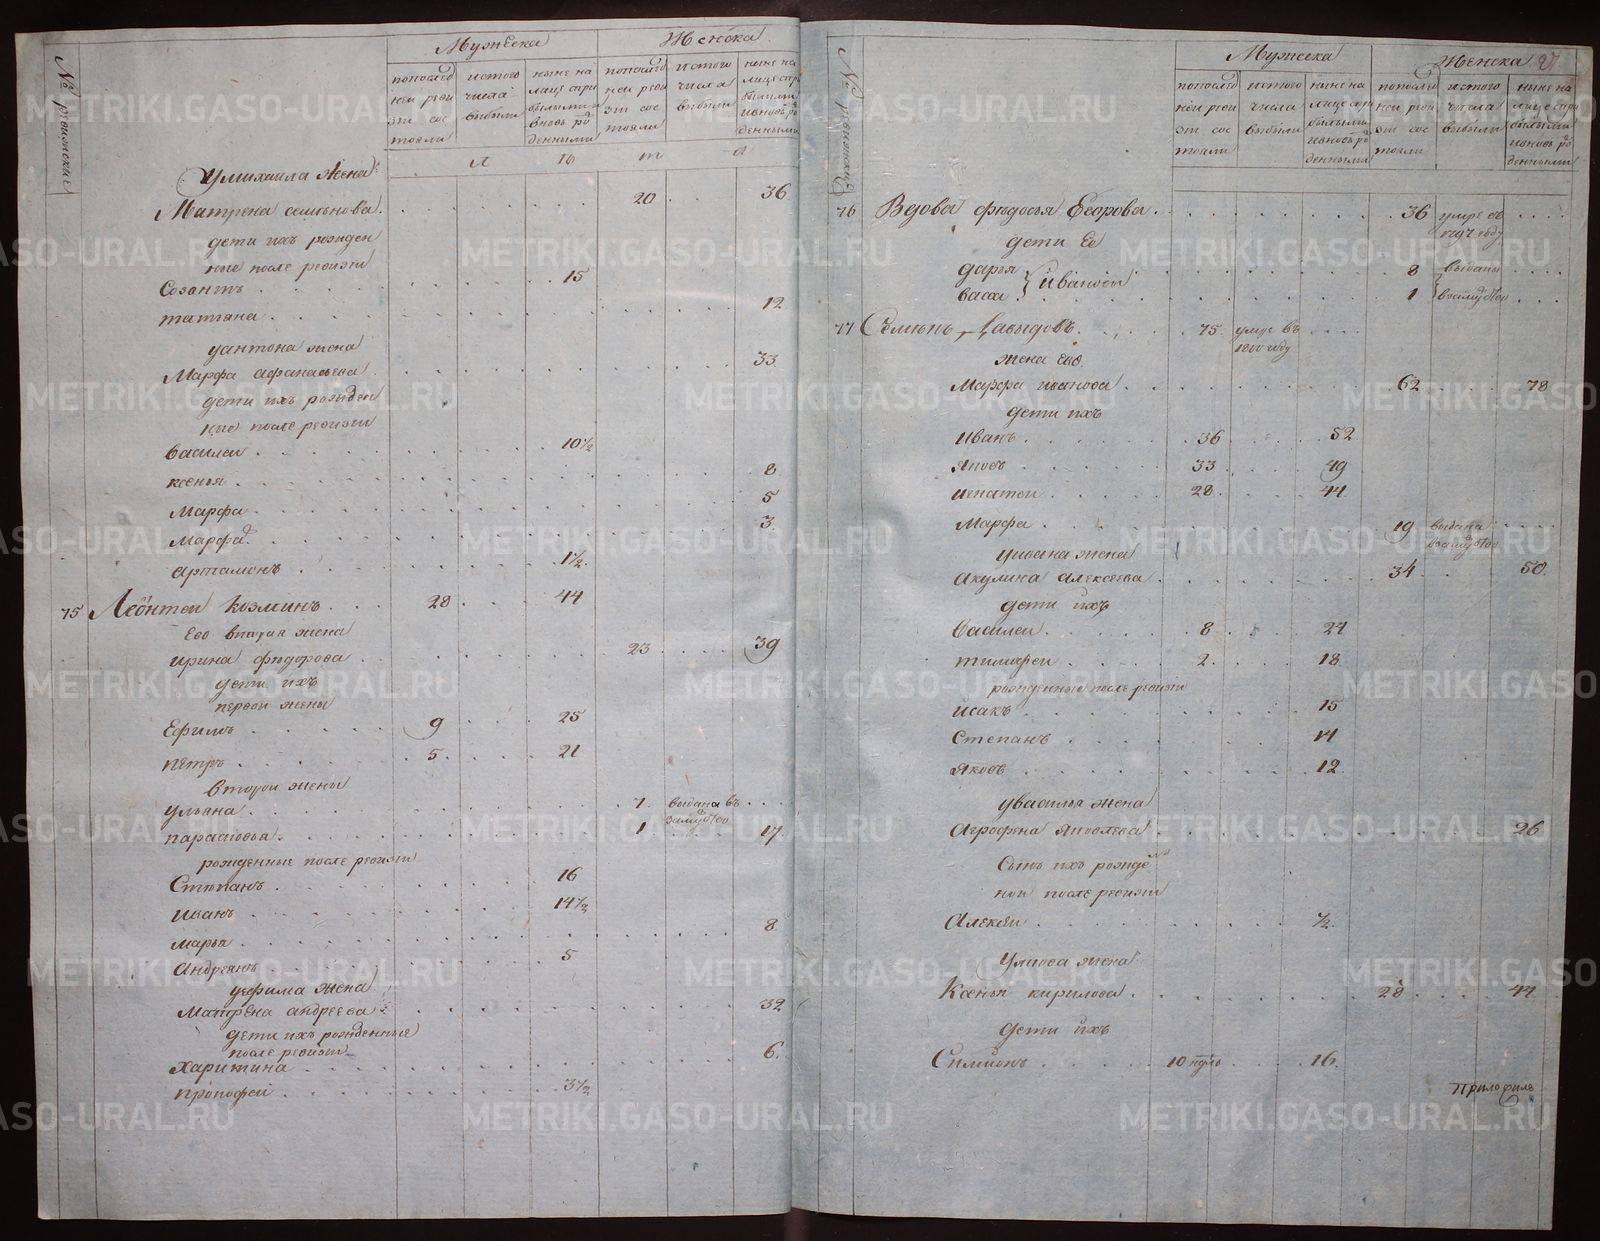 № ревижские
Мужеска
Женска
попослед
ней реви
зи сос
тояли
истого
числа
выбыли
ныне на
лице спри
былыми и
вновь ро
денными
попослед
ней реви
зи сос
тояли
истого
числа
выбыли
ныне на
лице спри
былыми
ивновь ро
денными
л е т а
Умихаила жена
Матрена семенова 20 36
дети ихъ рожден
ные после ревизи
Созонтъ 15
татьяна 12
уантона жена
Марфа афанасьева 33
дети ихъ рожден
ные после ревизи
василеи 10½
ксенья 8
Марфа 5
марфа 3
артамонъ 1½
75 Леонтеи козминъ 28 44
Его вторая жена
ирина федорова 23 39
дети ихъ
первои жены
Ефимъ 9 25
петръ 5 21
второи жены
ульяна 7 выдана въ
замужство
парасковья 1 17
рожденные после ревизи
Степанъ 16
иванъ 14½
марья 8
андреянъ 5
уефима жена
Матрена андреева 32
дети ихъ рожденные
после ревизи
харитина 6
прокофеи 3½
№ ревижские
Мужеска
Женска
27
попослед
ней реви
зи сос
тояли
истого
числа
выбыли
ныне на
лице спри
былыми
ивновь ро
денными
попослед
ней реви
зи сос
тояли
истого
числа
выбыли
ныне на
лице спри
былыми
ивновь ро
денными
76 Вдова федосья Егорова 36 умре въ
году
дети Ее
дарья 8 выданы
васса Ивановы 1 взамужство
77 Семенъ давыдовъ 75 умре въ
1800 году
жена Его
Марфа иванова 62 78
дети ихъ
Иванъ 36 52
Яковъ 33 49
игнатеи 28 44
Марфа 19 выдана
взамужство
уивана жена
Акулина Алексеева 34 50
дети ихъ
Василеи 8 24
тимофеи 2 18
рожденные после ревизи
исакъ 15
Степанъ 14
Яковъ 12
увасилья жена
Агрофена Яковлева 26
Сынъ ихъ рожде
нои после ревизи
Алексеи ½
Уякова жена
Ксенья кирилова 28 44
дети ихъ
Симионъ 10 16
METRIKI.GASO-URAL.RU